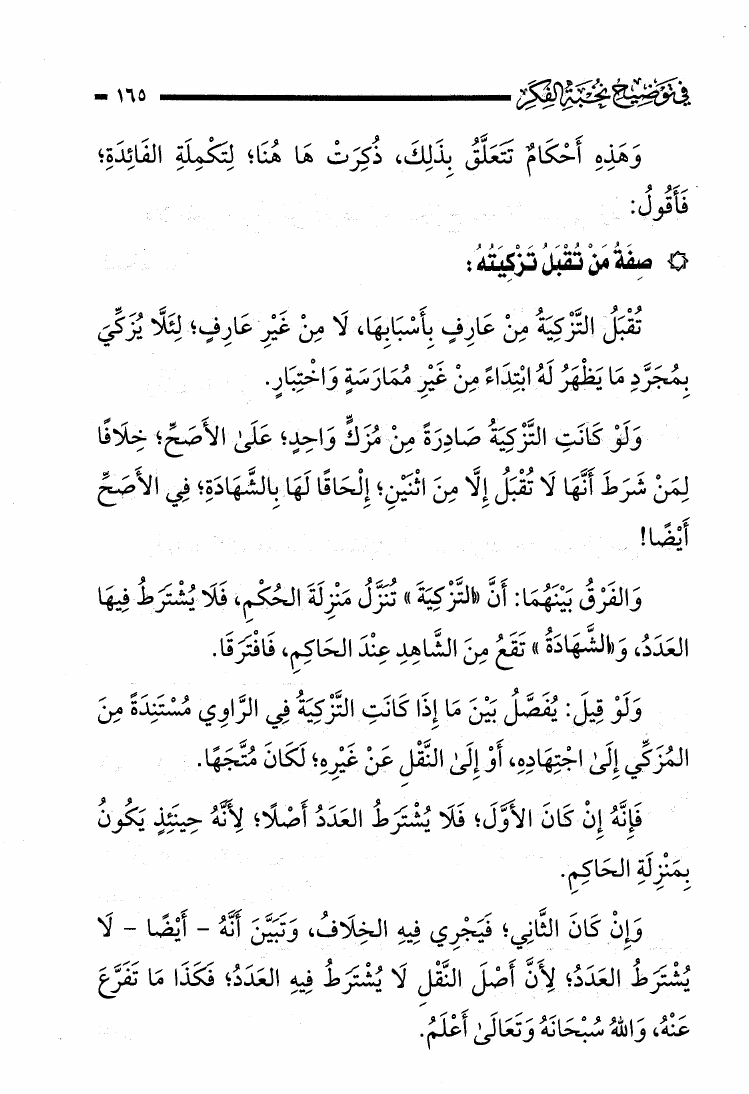 في توضيح نخبة الفكر ١٦٥
وَهَذِهِ أَحْكَامٌ تَتَعَلَّقُ بِذَلِكَ، ذُكِرَتْ هَا هُنَا؛ لِتَكْمِلَةِ الفَائِدَةِ؛
فَأَقُولُ:
صِفَةُ مَنْ تُقْبَلُ تَزْكِيَتُهُ:
تُقْبَلُ التَّزْكِيَةُ مِنْ عَارِفٍ بِأَسْبَابِهَا، لَا مِنْ غَيْرِ عَارِفٍ؛ لِئَلَّا يُزَكِّيَ
بِمُجَرَّدِ مَا يَظْهَرُ لَهُ ابْتِدَاءً مِنْ غَيْرِ مُمَارَسَةٍ وَاخْتِبَارٍ.
وَلَوْ كَانَتِ التَّزْكِيَةُ صَادِرَةً مِنْ مُزَكٍّ وَاحِدٍ؛ عَلَىٰ الأَصَحِّ؛ خِلَافًا
لِمَنْ شَرَطَ أَنَّهَا لَا تُقْبَلُ إِلَّا مِنَ اثْنَيْنِ؛ إِلْحَاقًا لَهَا بِالشَّهَادَةِ؛ فِي الأَصَحِّ
أَيْضًا!
وَالفَرْقُ بَيْنَهُمَا: أَنَّ «التَّزْكِيَةَ» تُنَزَّلُ مَنْزِلَةَ الحُكْمِ، فَلَا يُشْتَرَطُ فِيهَا
العَدَدُ، وَ«الشَّهَادَةُ» تَقَعُ مِنَ الشَّاهِدِ عِنْدَ الحَاكِمِ، فَافْتَرَقَا.
وَلَوْ قِيلَ: يُفَصَّلُ بَيْنَ مَا إِذَا كَانَتِ التَّزْكِيَةُ فِي الرَّاوِي مُسْتَنِدَةً مِنَ
المُزَكِّي إِلَىٰ اجْتِهَادِهِ، أَوْ إِلَىٰ النَّقْلِ عَنْ غَيْرِهِ؛ لَكَانَ مُتَّجَهًا.
فَإِنَّهُ إِنْ كَانَ الأَوَّلَ؛ فَلَا يُشْتَرَطُ العَدَدُ أَصْلًا؛ لِأَنَّهُ حِينَئِذٍ يَكُونُ
بِمَنْزِلَةِ الحَاكِمِ.
وَإِنْ كَانَ الثَّانِي؛ فَيَجْرِي فِيهِ الخِلَافُ، وَتَبَيَّنَ أَنَّهُ - أَيْضًا - لَا
يُشْتَرَطُ العَدَدُ؛ لِأَنَّ أَصْلَ النَّقْلِ لَا يُشْتَرَطُ فِيهِ العَدَدُ؛ فَكَذَا مَا تَفَرَّعَ
عَنْهُ، وَاللهُ سُبْحَانَهُ وَتَعَالَىٰ أَعْلَمُ.